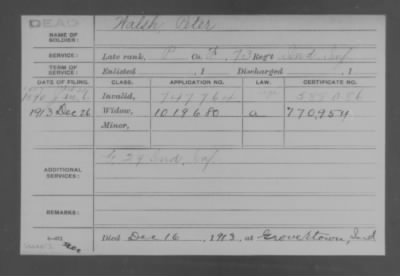 DEAD
NAME OF SOLDIER: Walsh, Peter
SERVICE: Late rank, P Co. 73 Reg't Ind. Inf.
TERM OF SERVICE: Enlisted , 1 Discharged , 1
DATE OF FILING. CLASS. APPLICATION NO. LAW. CERTIFICATE NO.
1890 Invalid, 747764
1913 Dec 26 Widow, 1019680 a 770,954
Minor,
ADDITIONAL SERVICES: 29 Ind. Inf.
REMARKS:
Died Dec 16, 1913, at Grovertown, Ind